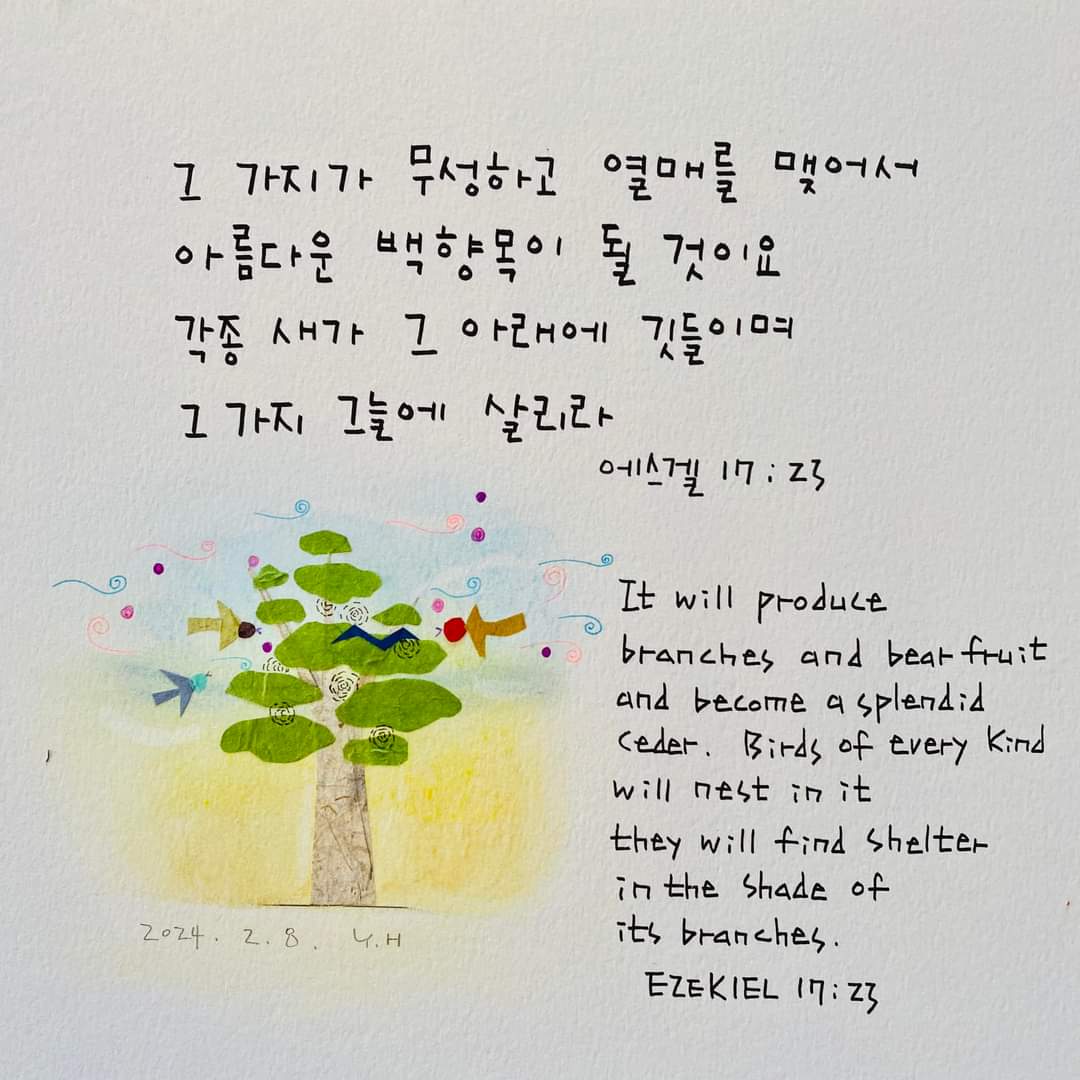 그 가지가 무성하고 열매를 맺어서
아름다운 백향목이 될 것이요
각종 새가 그 아래에 깃들이며
그 가지 그늘에 살리라
에스겔 17:23
It will produce
branches and bear fruit
and become a splendid
ceder. Birds of every kind
will nest in it
they will find shelter
in the shade of
its branches.
EZEKIEL 17:23
2024. 2. 8. Y.H